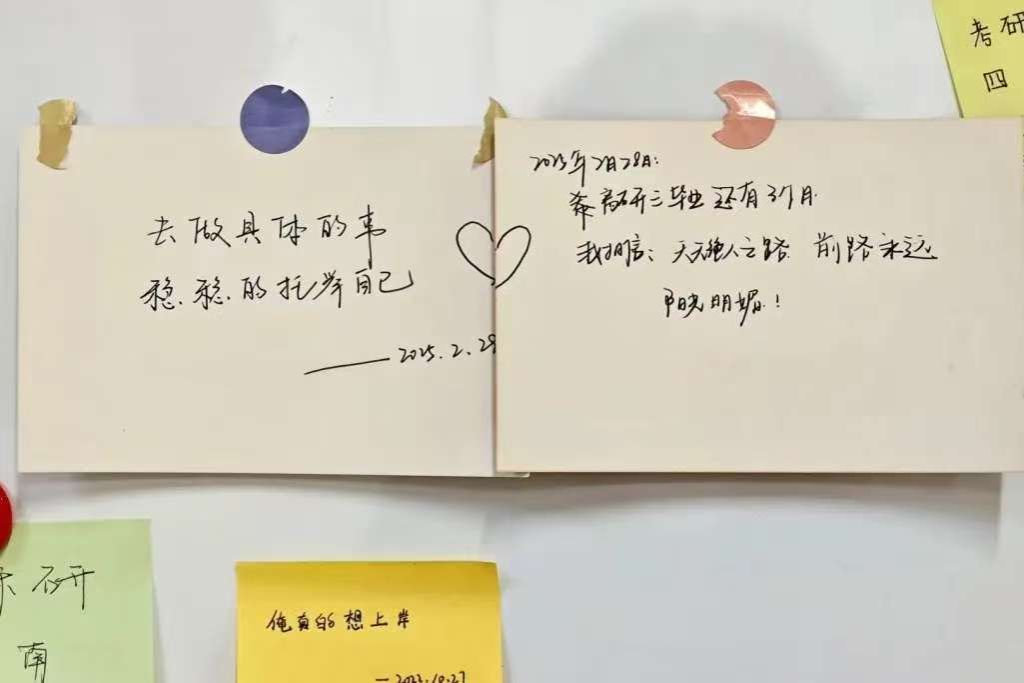 去做具体的事
稳稳的托举自己
——2025.2.28
2025年2月28日:
离研三毕业还有3个月
我相信:天无绝人之路 前路永远
阳光明媚!
考研
四
研
南
俺真的想上岸
—2023.10.27